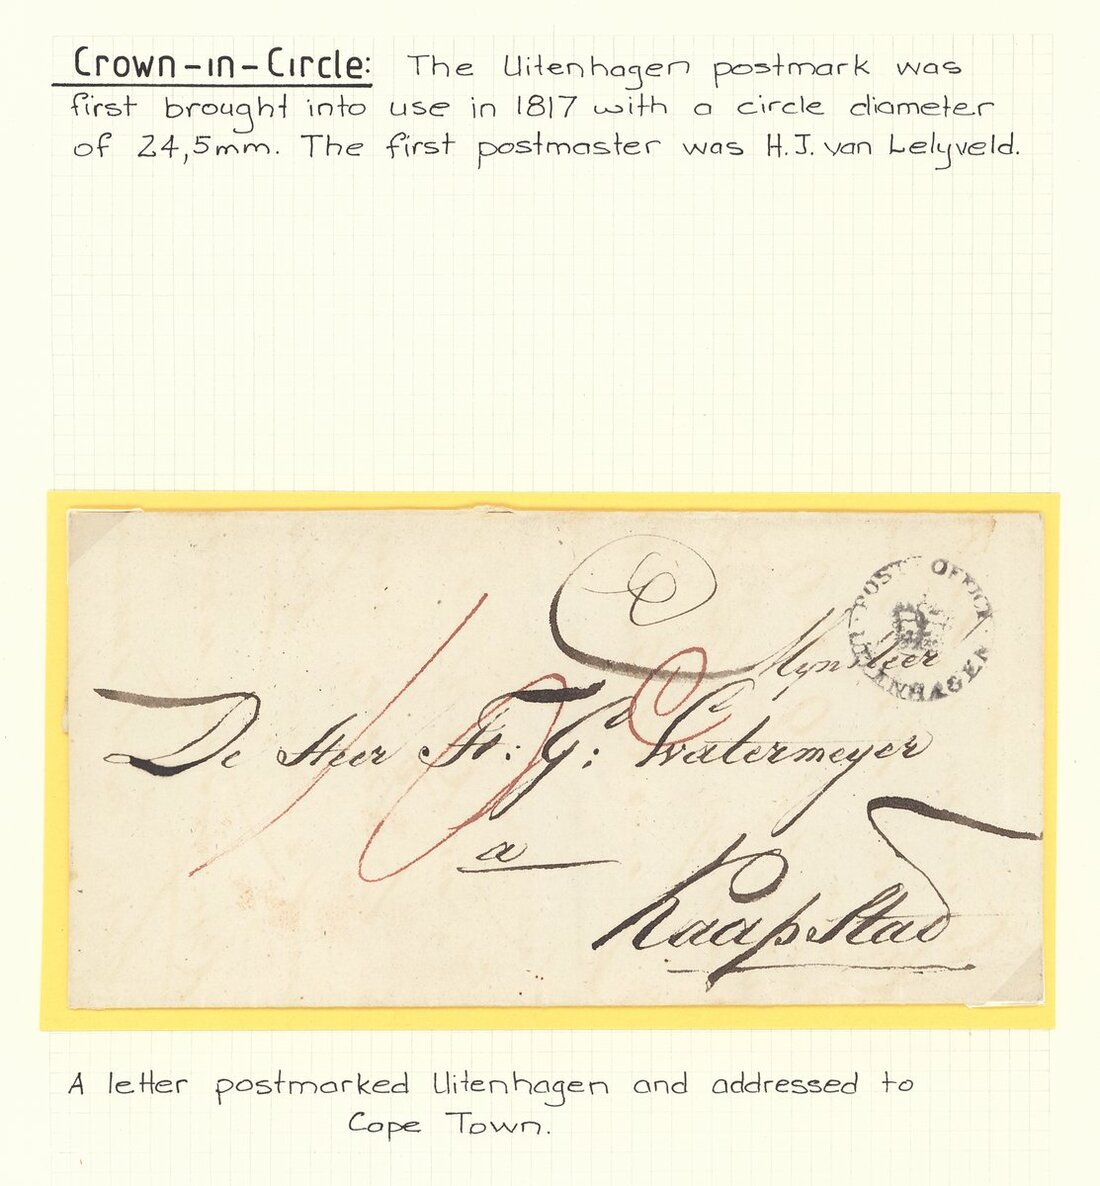 Crown-in-Circle: The Uitenhagen postmark was
first brought into use in 1817 with a circle diameter
of 24,5mm. The first postmaster was H.J. van Lelyveld.
POST OFFICE
UITENHAGEN
Mynheer
De Heer Fr: Gd: Watermeyer
a
Kaapstad
A letter postmarked Uitenhagen and addressed to
Cape Town.